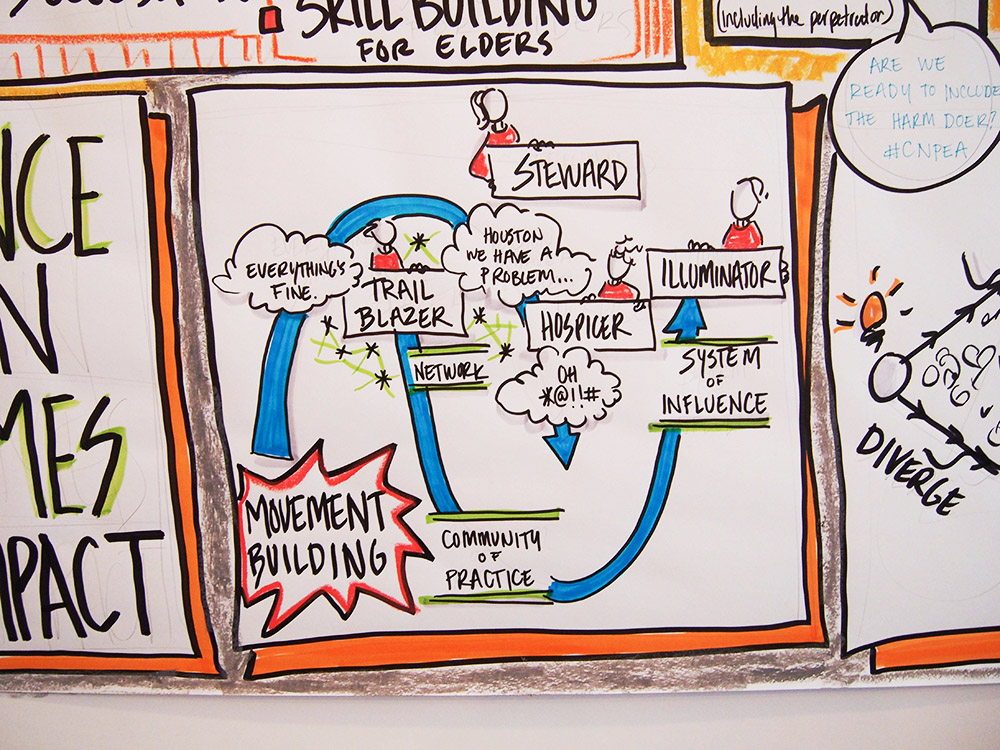 SKILL BUILDING
FOR ELDERS
(including the perpetrator)
ARE WE
READY TO INCLUDE
THE HARM DOER?
#CNPEA
STEWARD
EVERYTHING'S
FINE.
HOUSTON
WE HAVE A
PROBLEM...
TRAIL
BLAZER
HOSPICER
ILLUMINATOR
NETWORK
OH
*@!!#
SYSTEM
OF
INFLUENCE
MOVEMENT
BUILDING
COMMUNITY
OF
PRACTICE
DIVERGE